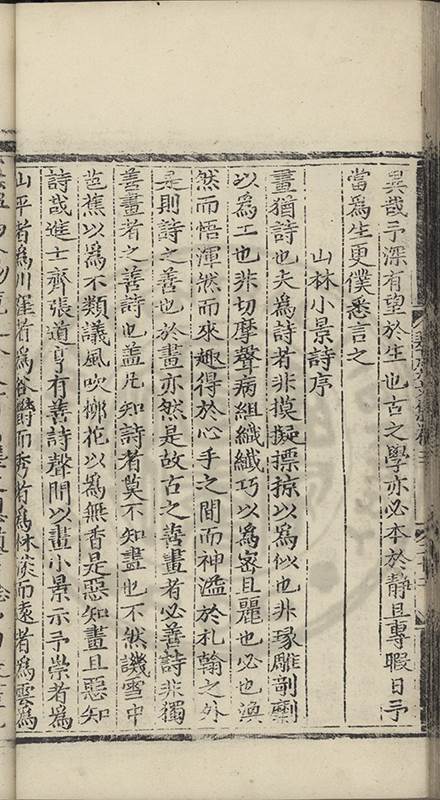 異哉予深有望於生也古之學亦必本於靜且專暇日予
當爲生更僕悉言之
山林小景詩序
畫猶詩也夫爲詩者非摸擬摽掠以爲似也非琢雕剞劂
以爲工也非切摩聲病組織纖巧以爲密且麗也必也渙
然而悟渾然而來趣得於心手之間而神溢於札翰之外
是則詩之善也於畫亦然是故古之善畫者必善詩非獨
善畫者之善詩也盖凡知詩者莫不知畫也不然譏雪中
芭蕉以爲不類議風吹柳花以爲無香是惡知畫且惡知
詩哉進士齊張道亨有善詩聲間以畫小景示予崇者爲
山平者爲川窪者爲谷欝而秀者爲林淡而遠者爲雲爲